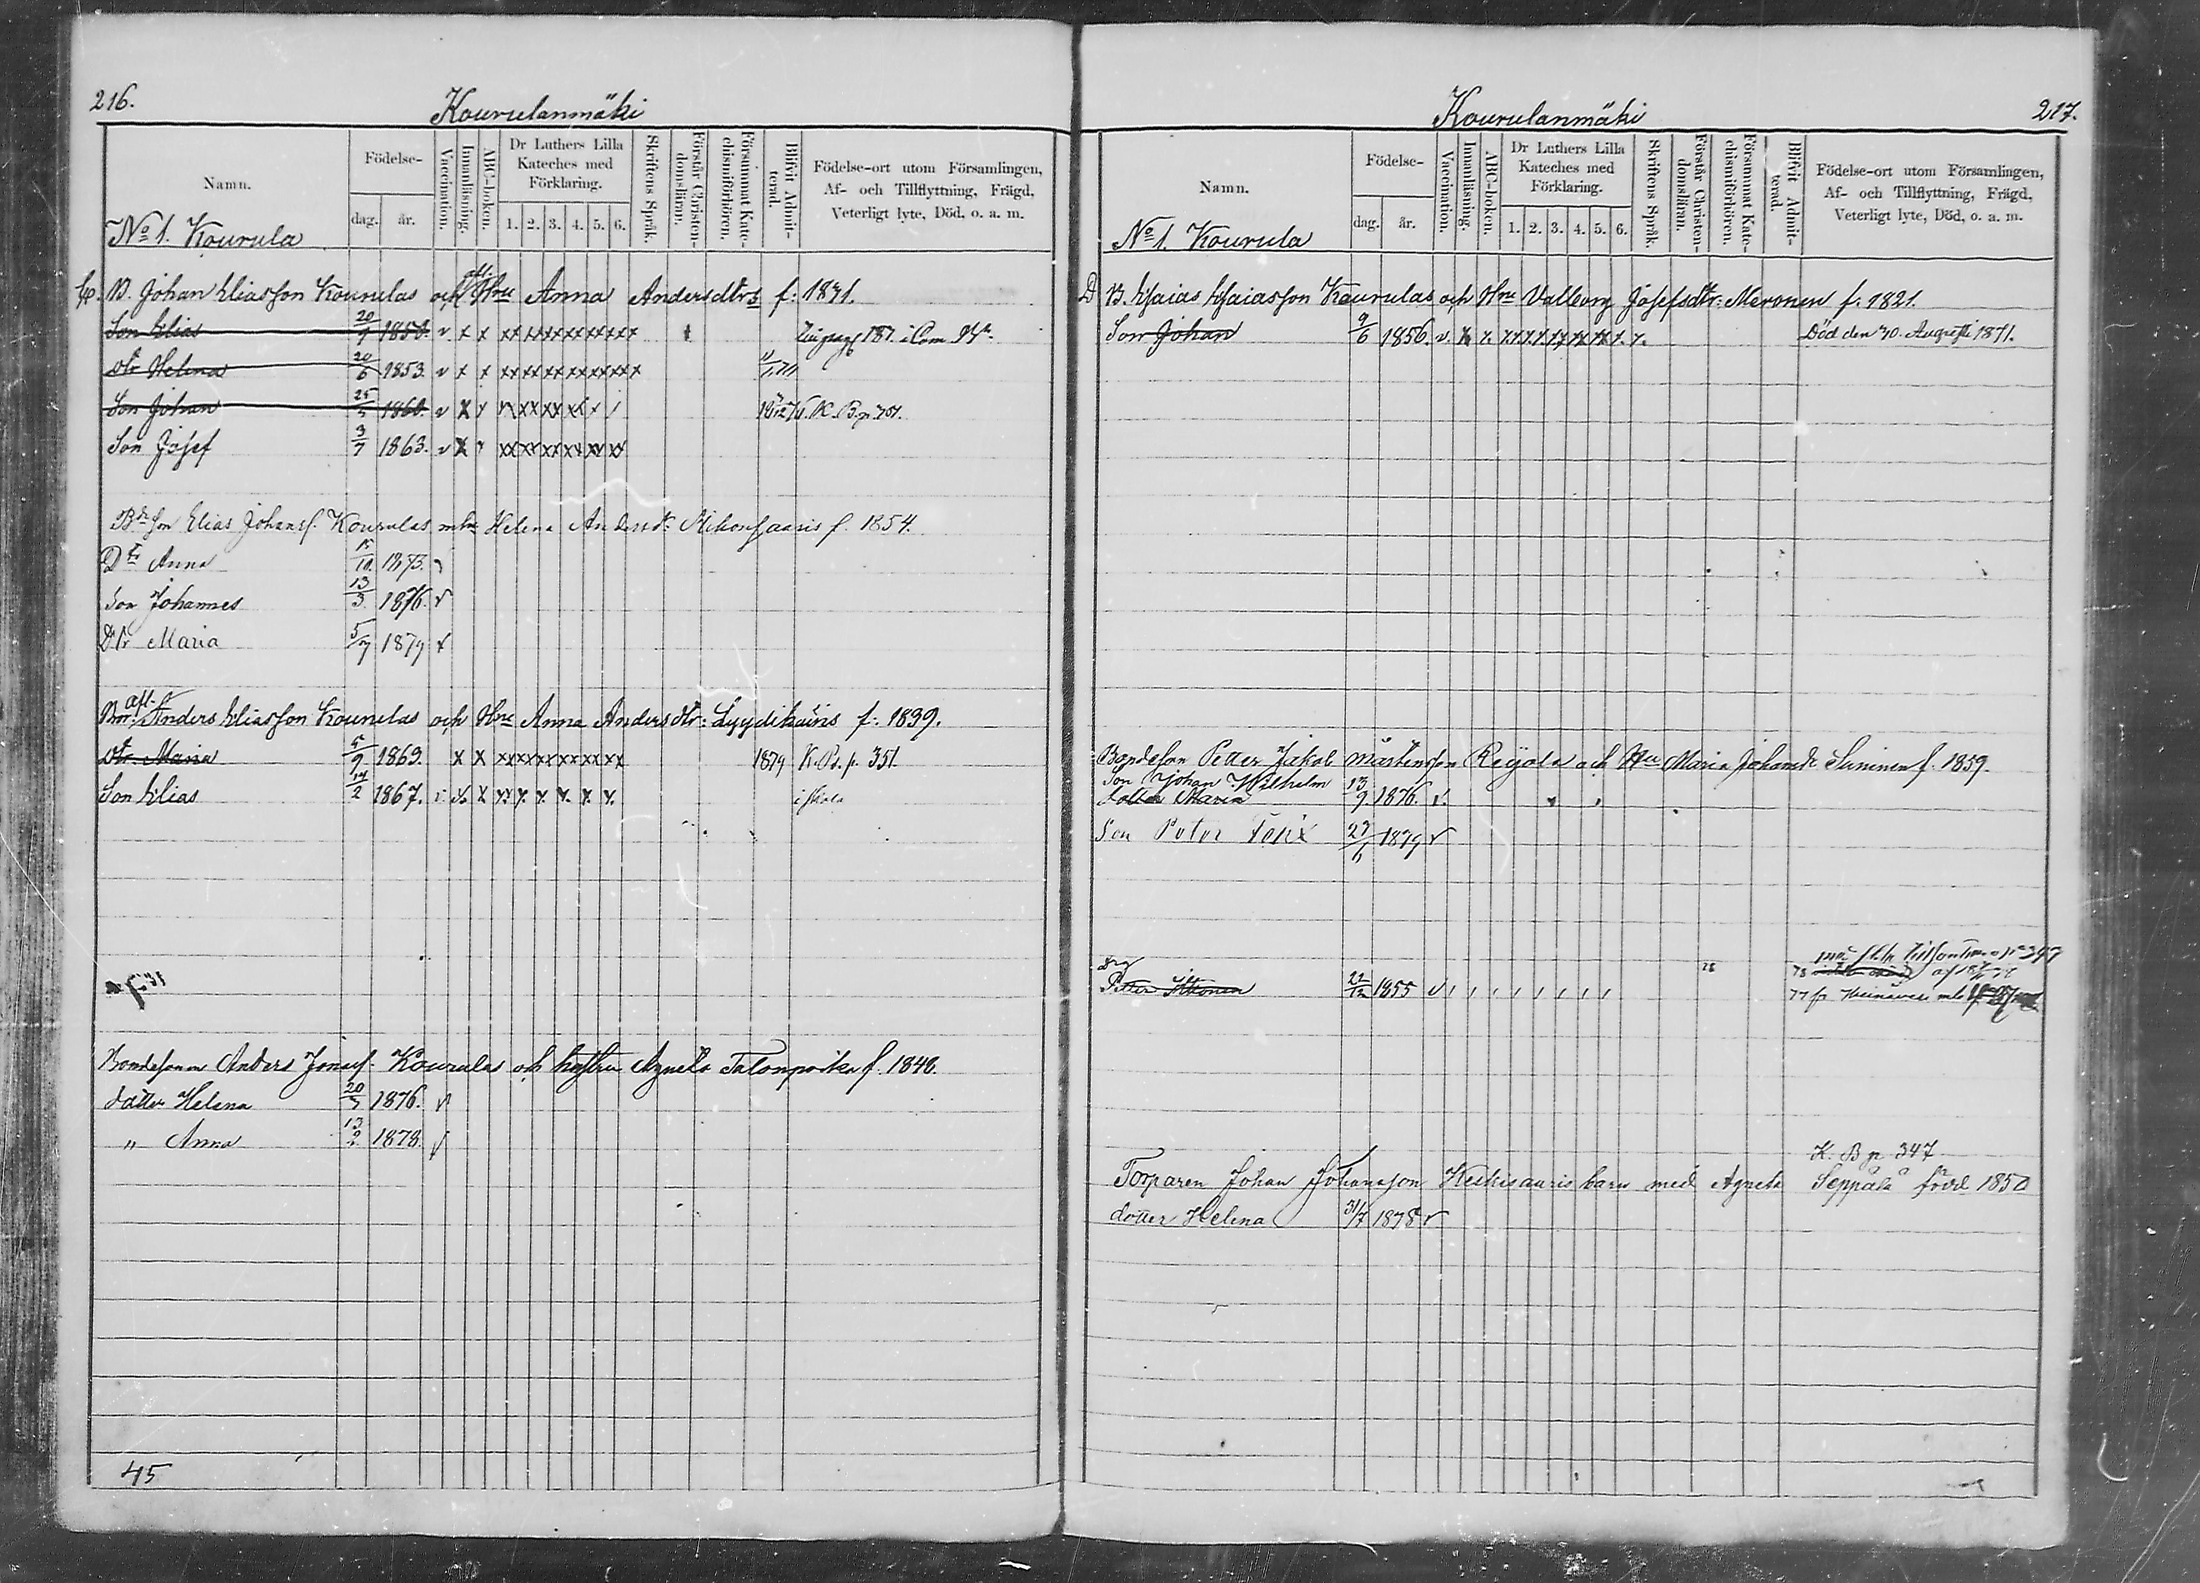 216.
Kourulanmäki
Namn.
Födelse-
dag.
år.
Vaccination.
Innanläsning.
ABC-boken.
Dr Luthers Lilla Kateches med Förklaring.
1. 2. 3. 4. 5. 6.
Skriftens Språk.
Förstår Christendomsläran.
Försummat Katechismiförhören.
Blifvit Admitterad.
Födelse-ort utom Församlingen,
Af- och Tillflyttning, Frägd,
Veterligt lyte, Död, o. a. m.
No 1. Kourula
B. Johan Eliasson Kourulas och Hru Anna Andersdtrs f: 1831.
Son Elias 20/9 1850. v x x xx xx xx xx xx xx x i Com
dtr Helena 20/6 1853. v x x xx xx xx xx xx xx x
Son Johan 25/5 1860. v x x K. B. p.
Son Josef 3/7 1863. v x xx xx xx xx xx xx
Bde son Elias Johansf. Kourulas m hu Helena Andersdr f. 1854.
Dtr Anna 15/10. 1873.
Son Johannes 13/3 1876. v
Dtr Maria 5/7 1879 v
afl.
Bor. Anders Eliasson Kourulas och Hru Anna Anders dtr: Lyydikäinis f: 1839.
dtr Maria 5/9 1863. x x xx xx xx xx xx xx 1879 K. B. p. 351.
Son Elias 14/2 1867. v x x x x x x x i skola
Bondesonen Anders Kourulas och hustru Agneta Talonpoika f. 1848.
dotter Helena 20/5 1876. v
„ Anna 13/2 1878. v
45
Kourulanmäki
217.
Namn.
Födelse-
dag.
år.
Vaccination.
Innanläsning.
ABC-boken.
Dr Luthers Lilla Kateches med Förklaring.
1. 2. 3. 4. 5. 6.
Skriftens Språk.
Förstår Christendomsläran.
Försummat Katechismiförhören.
Blifvit Admitterad.
Födelse-ort utom Församlingen,
Af- och Tillflyttning, Frägd,
Veterligt lyte, Död, o. a. m.
No 1. Kourula
D B. Esaias Esaiasson Kourulas och Hru Valborg Josefsdtr: Meronen f: 1821.
Son Johan 9/6 1856. v. x x. xx xx xx xx xx x. x. Död den 30. Augusti 1871.
Bondeson Petter Jakob Reijola och Hu Maria Johansdr Suninen f. 1859.
Son Johan Wilhelm
dotter Maria 13/9 1876. v.
Son Peter Felix 29/6 1879 v
Drg
Petter Ikonen 22/12 1855 v
78
77 fr Heinävesi
K. B p 347
Torparen Johan Johansson Kuhisauris barn med Agneta Seppälä född 1850
dotter Helena 31/7 1878 v